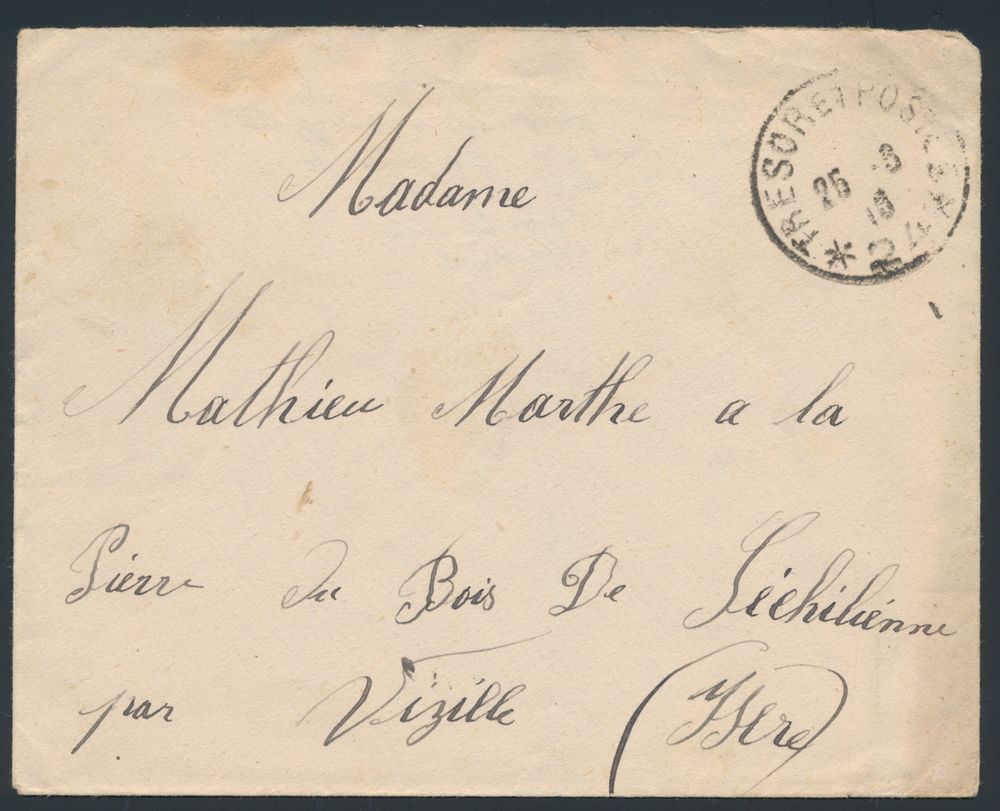 Madame
TRESOR ET POSTES
25 -3
* 247
Mathieu Marthe a la
Pierre du Bois De Séchiliénne
par Vizille (Isère)